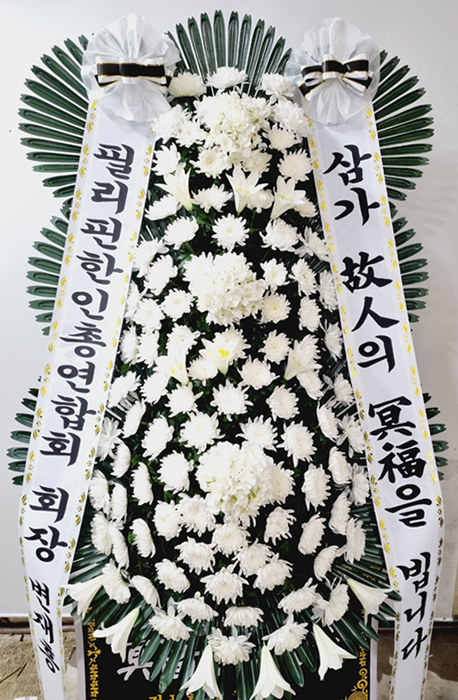 필리핀한인총연합회 회장 변재흥
삼가 故人의 冥福을 빕니다